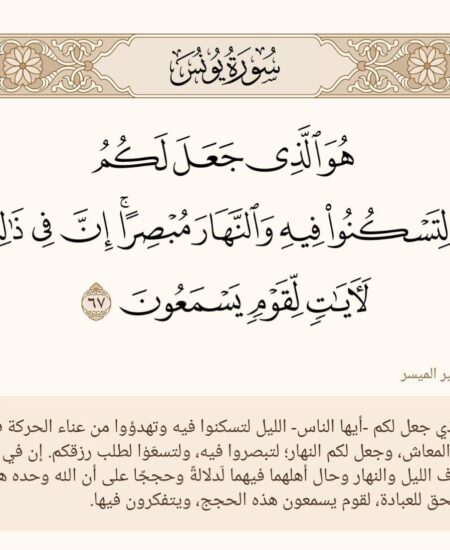 سُورَةُ يُونُسَ
هُوَ ٱلَّذِى جَعَلَ لَكُمُ
لِتَسْكُنُوا۟ فِيهِ وَٱلنَّهَارَ مُبْصِرًا ۚ إِنَّ فِى
لَءَايَٰتٍ لِّقَوْمٍ يَسْمَعُونَ ٦٧
الميسر
جعل لكم -أيها الناس- الليل لتسكنوا فيه وتهدؤوا من عناء الحركة
المعاش، وجعل لكم النهار؛ لتبصروا فيه، ولتسعَوْا لطلب رزقكم. إن في
الليل والنهار وحال أهلهما فيهما لَدلالةً وحججًا على أن الله وحده
للعبادة، لقوم يسمعون هذه الحجج، ويتفكرون فيها.